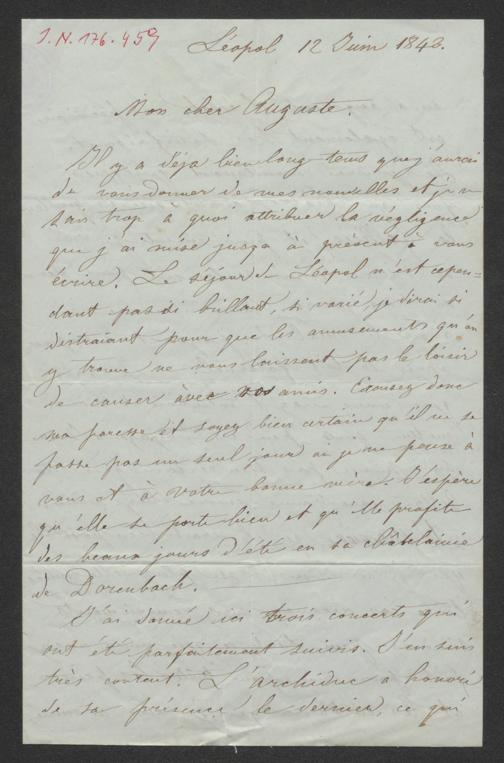 I.N. 176.459
Léopol 12 Juin 1843.
Mon cher Auguste.
Il y a déja bien long tems que j'aurai
du vous donner de mes nouvelles et je ne
sais trop à quoi attribuer la négligence
que j'ai mise jusqu à présent à vous
écrire. Le séjour de Léopol n'est cepen=
dant pas si brillant, si varié, je dirai si
distraiant pour que les amusements qu'on
y trouve ne vous laissent pas le loisir
de causer avec vos amis. Excusez donc
ma paresse et soyez bien certain qu'il ne se
passe pas un seul jour où je ne pense à
vous et à votre bonne mère. J'espère
qu'elle se porte bien et qu'elle profite
des beaux jours d'été en sa châtelainie
de Dorenbach.
J'ai donné ici trois concerts qui
ont été parfaitement suivis. J'en suis
très content. L'archiduc a honoré
de sa présence le dernier, ce qui